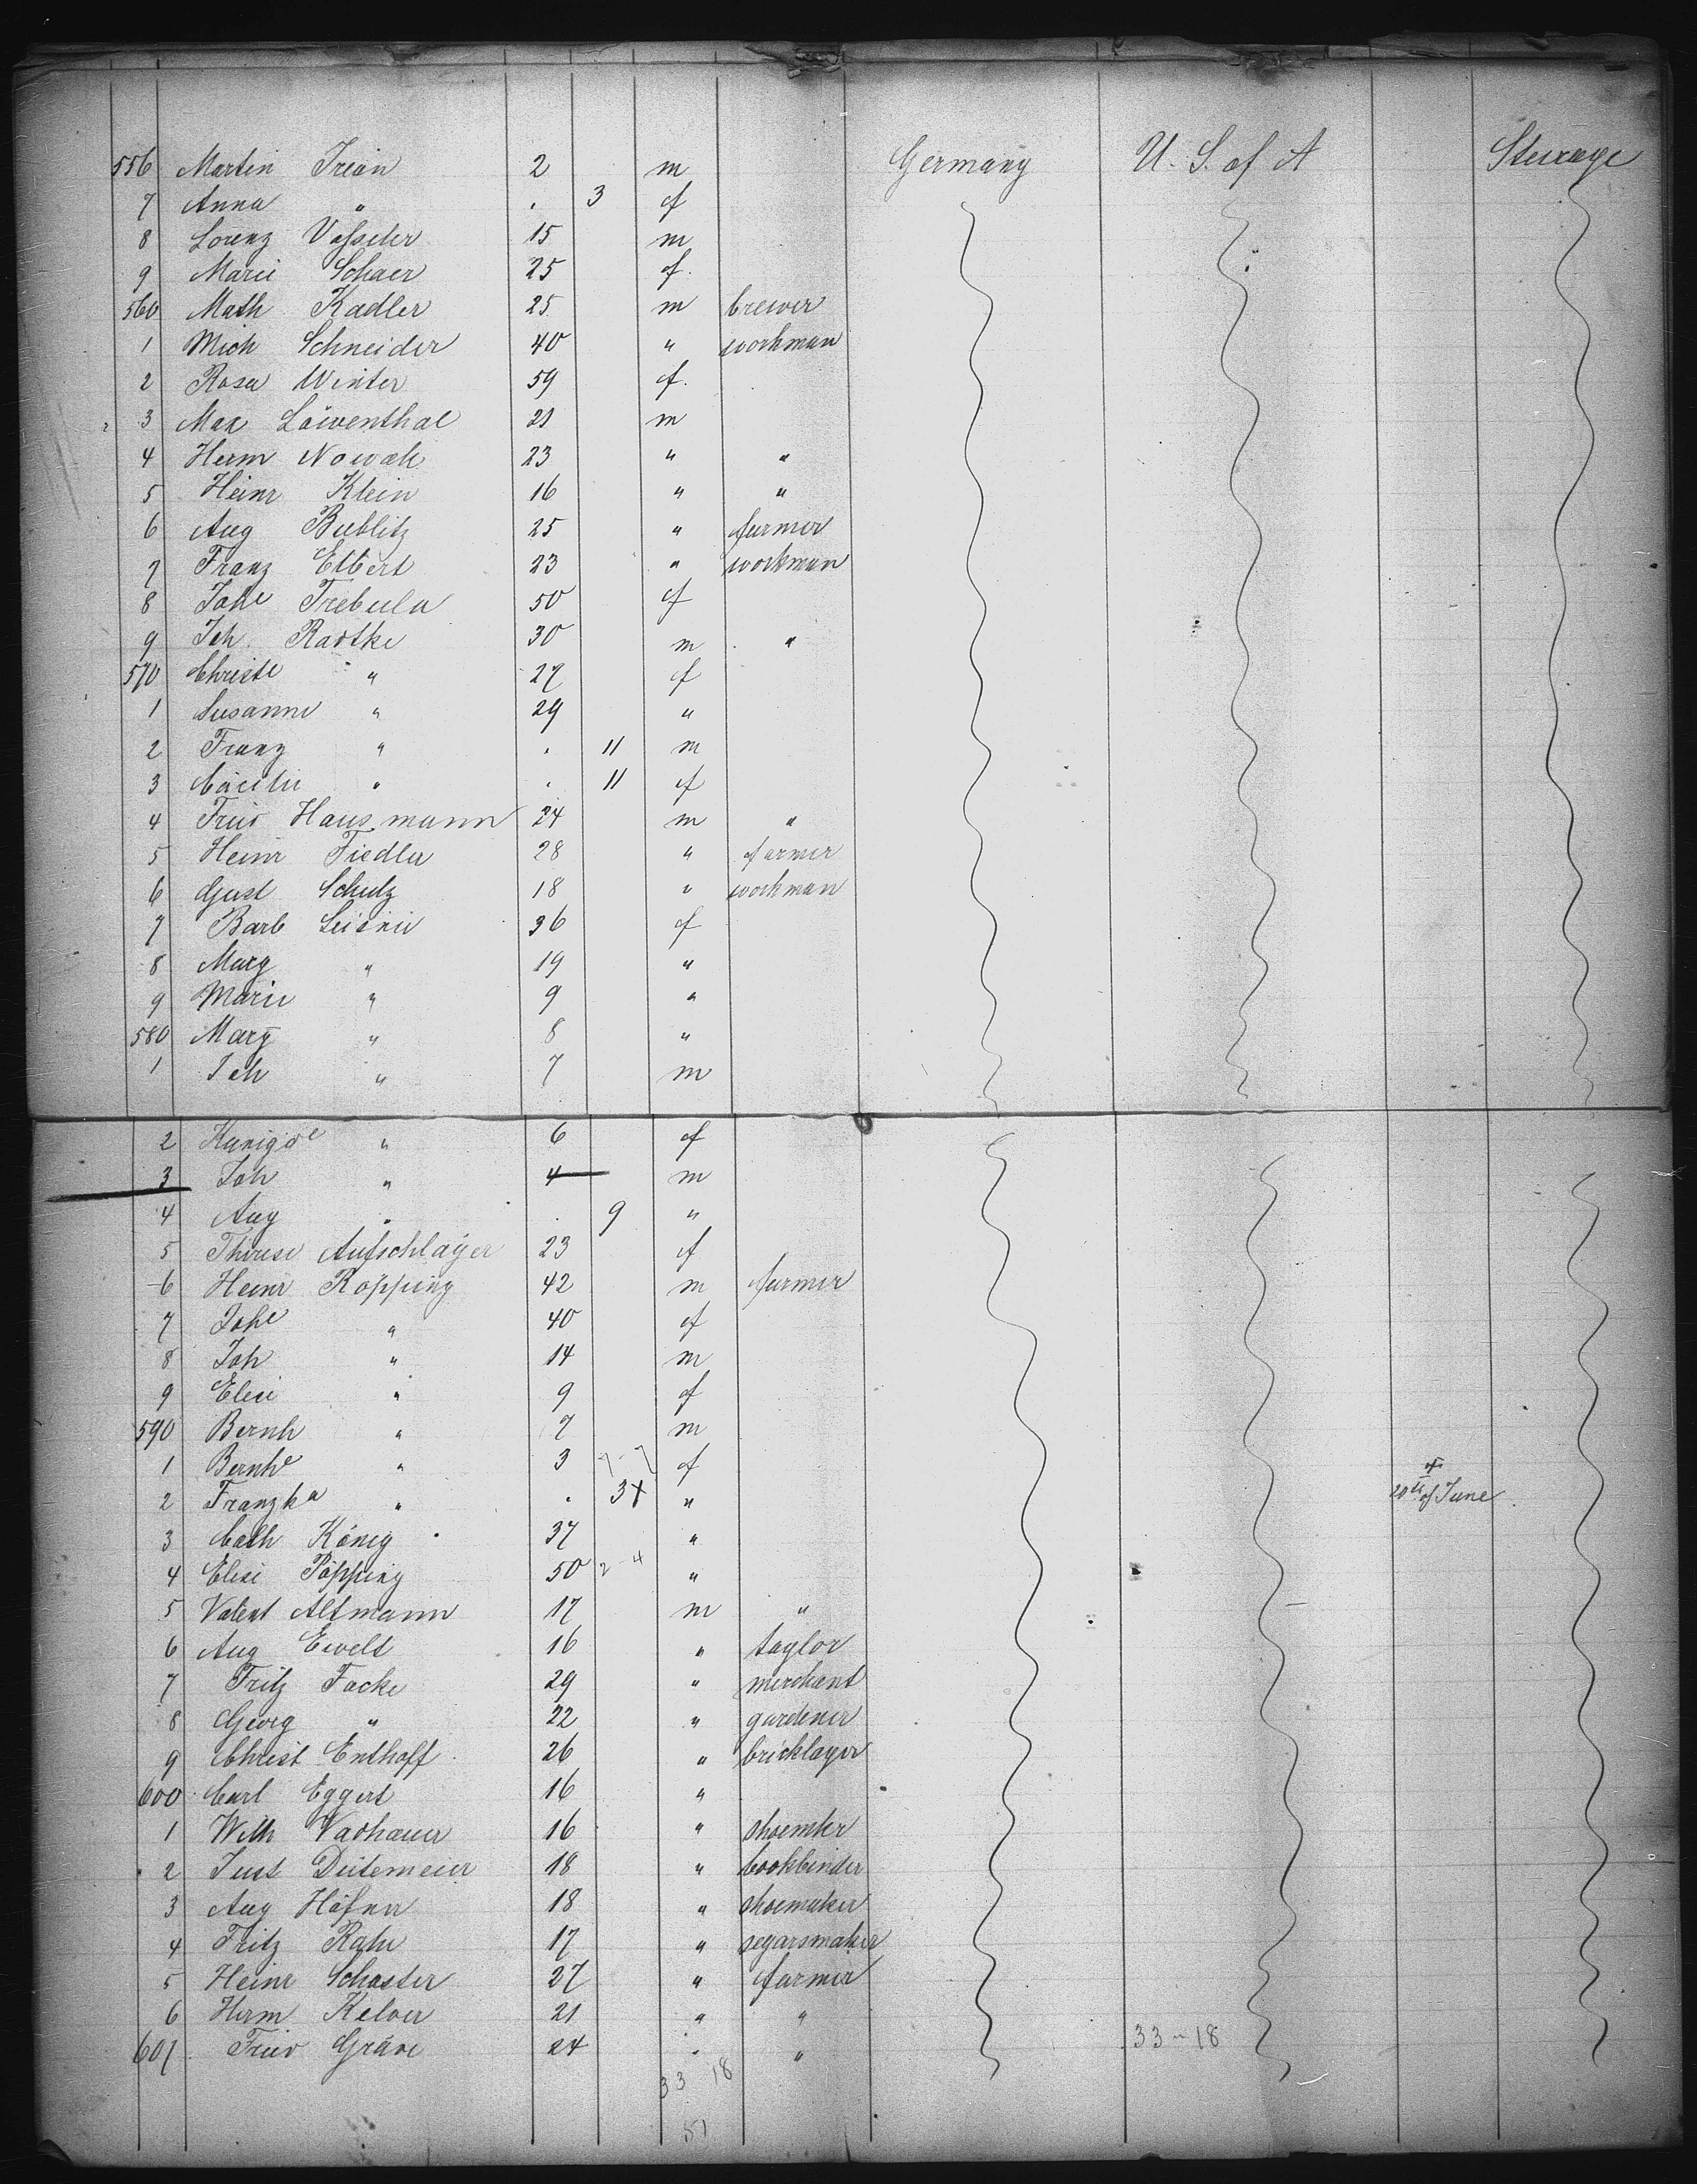 556 Martin Treon 2 m Germany U. S. of A Steerage
7 Anna " . 3 f
8 Lorenz 15 m
9 Marie Schaer 25 f.
560 Math Kadler 25 m brewer
1 Mich Schneider 40 " workman
2 Rosa Winter 59 f.
3 Max Löwenthal 21 m
4 Herm Nowak 23 " "
5 Heinr Klein 16 " "
6 Aug Bublitz 25 " farmer
7 Franz Elbert 23 " workman
8 Johe Trebula 50 f
9 Joh. Radtke 30 m "
570 Christe " 27 f
1 Susanne " 29 "
2 Franz " . 11 m
3 Cäcilie " . 11 f
4 Fried Hausmann 24 m "
5 Heinr Fiedler 28 " farmer
6 Gust Schulz 18 " workman
7 Barb 36 f
8 Marg " 19 "
9 Marie " 9 "
580 Marg " 8 "
1 Joh " 7 m
2 Kunigde " 6 f
3 Joh " 4 m
4 Aug " . 9 "
5 Therese Aufschläger 23 f
6 Heinr Röpping 42 m farmer
7 Johe " 40 f
8 Joh " 14 m
9 Elise " 9 f
590 Bernh " 7 m
1 Bernhe " 3 f
2 Franzka " . 3 + " + 20th of June
3 Cath König 37 "
4 Elise Pöpping 50 2-4 "
5 Valent Altmann 17 m "
6 Aug Ewelt 16 " taylor
7 Fritz Facke 29 " merchant
8 Georg " 22 " gardener
9 Christ Enthoff 26 " bricklayer
600 Carl Eggert 16 "
1 Wilh Vadhauer 16 " shoemker
2 Just Deitemeier 18 " bookbinder
3 Aug Höfner 18 " shoemaker
4 Fritz Rahe 17 " segarsmaker
5 Heinr Schaster 27 " farmer
6 Herm Kelver 21 " "
607 Fried Gräve 24 " "
33 18 33-18
51